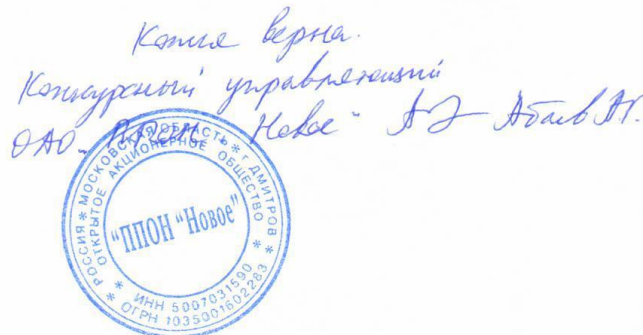 Копия верна.
Конкурсный управляющий
ОАО "ППОН "Новое" Абаев А.Г.
* РОССИЯ * МОСКОВСКАЯ ОБЛАСТЬ * г. ДМИТРОВ
ОТКРЫТОЕ АКЦИОНЕРНОЕ ОБЩЕСТВО
"ППОН "Новое"
* ИНН 5007031590 *
* ОГРН 1035001602283